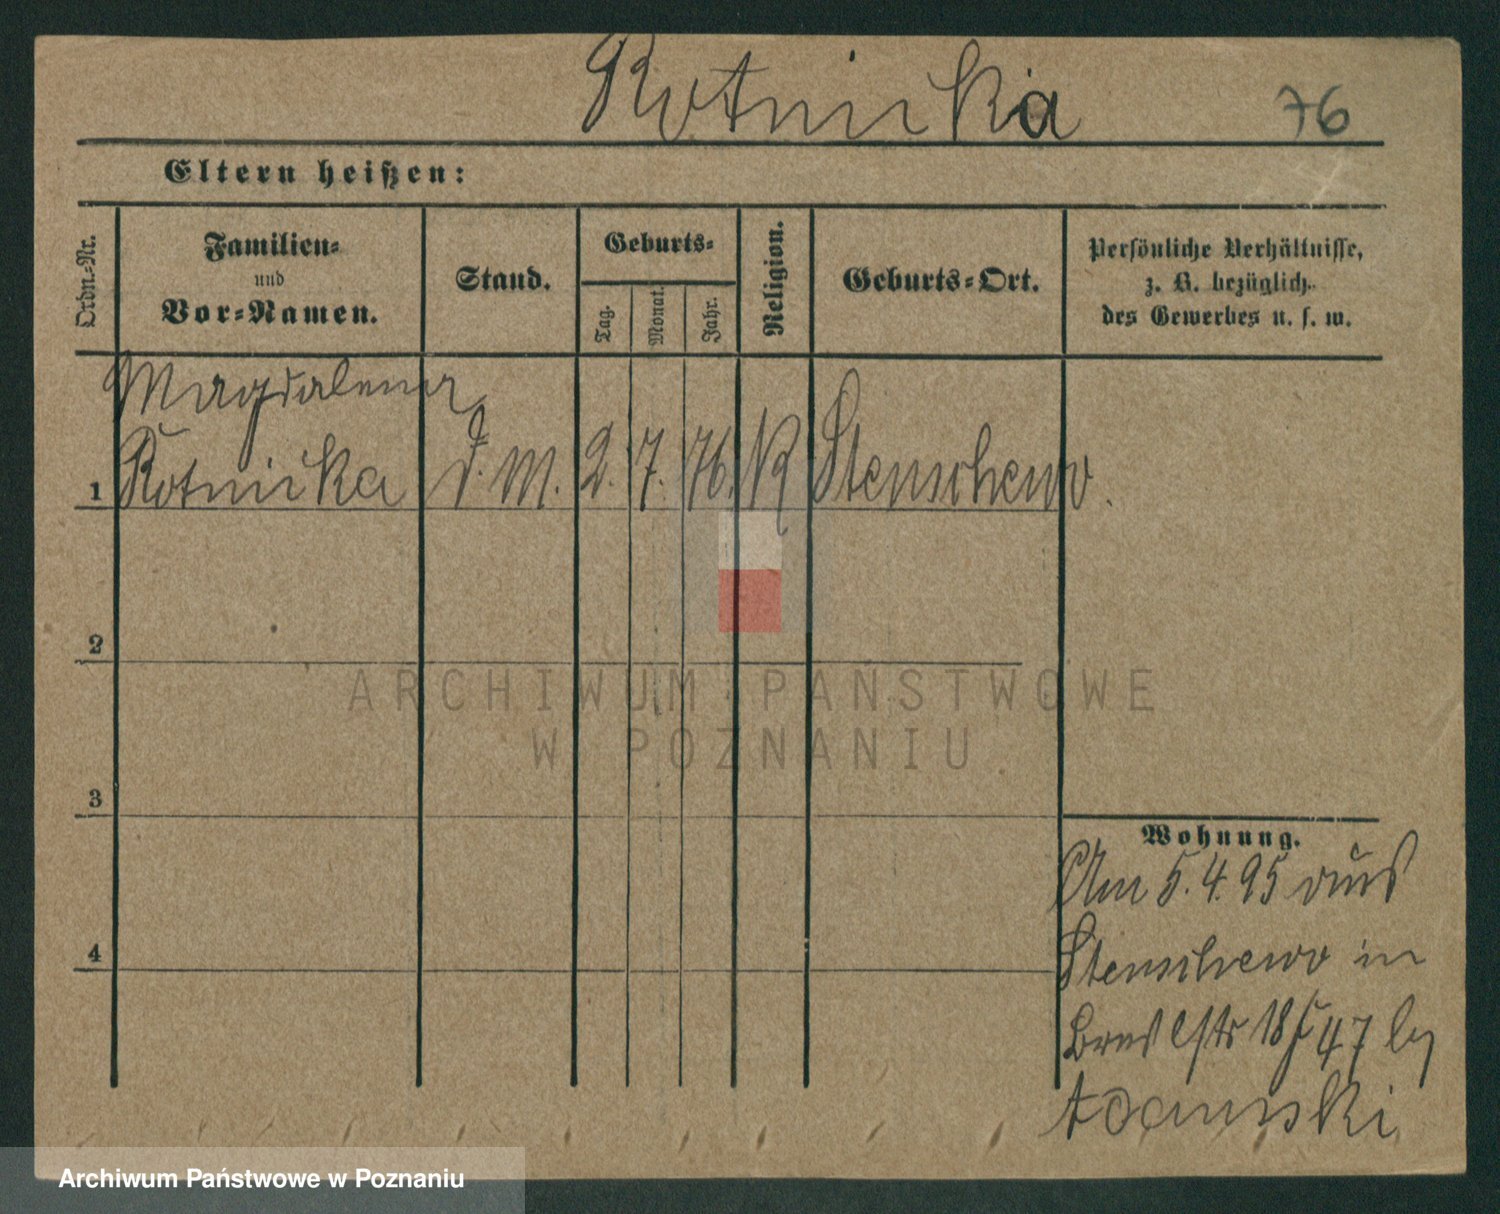 Rotnicka
76
Eltern heißen:
Ordn.=Nr.
Familien=
und
Vor=Namen.
Stand.
Geburts=
Tag.
Monat.
Jahr.
Religion.
Geburts=Ort.
Persönliche Verhältnisse,
z. B. bezüglich
des Gewerbes u. s. w.
Magdalena
1 Rotnicka d. M. 2. 7. 76. K Stenschewo.
2
ARCHIWUM PAŃSTWOWE
W POZNANIU
3
Wohnung.
Am 5.4.95 aus
4
Stenschewo in
Bresl str 18 47 by
Archiwum Państwowe w Poznaniu